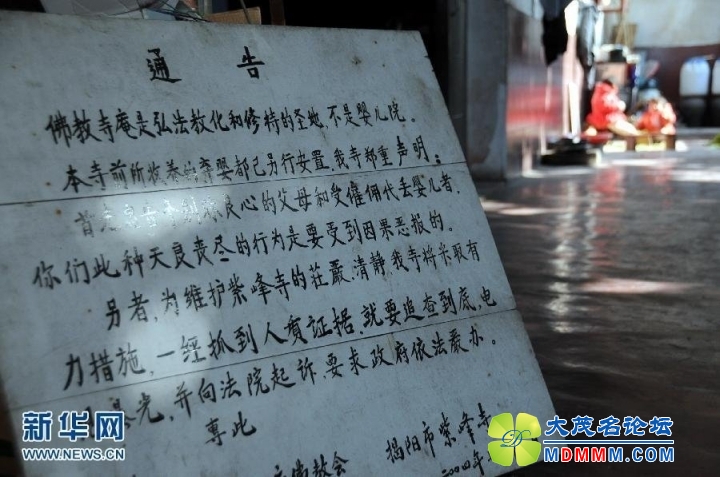 通告
佛教寺庵是弘法教化和修持的圣地,不是婴儿院。
本寺前所收养的弃婴都已另行安置,我寺郑重声明:
良心的父母和受雇佣代丢婴儿者,
你们此种天良丧尽的行为是要受到因果恶报的。
另者,为维护紫峰寺的莊嚴、清静,我寺将采取有
力措施,一经抓到人賍证据,就要追查到底,电
曝光,并向法院起诉,要求政府依法严办。
専此
佛教会 揭阳市紫峰寺
二〇〇四年
新华网
WWW.NEWS.CN
大茂名论坛
MDMMM.COM